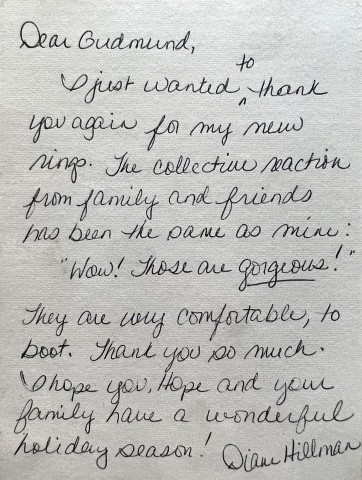 Dear Gudmund,
I just wanted to thank
you again for my new
rings. The collective reaction
from family and friends
has been the same as mine:
"Wow! Those are gorgeous!"
They are very comfortable, to
boot. Thank you so much.
I hope you, Hope and your
family have a wonderful
holiday season!
Diane Hillman